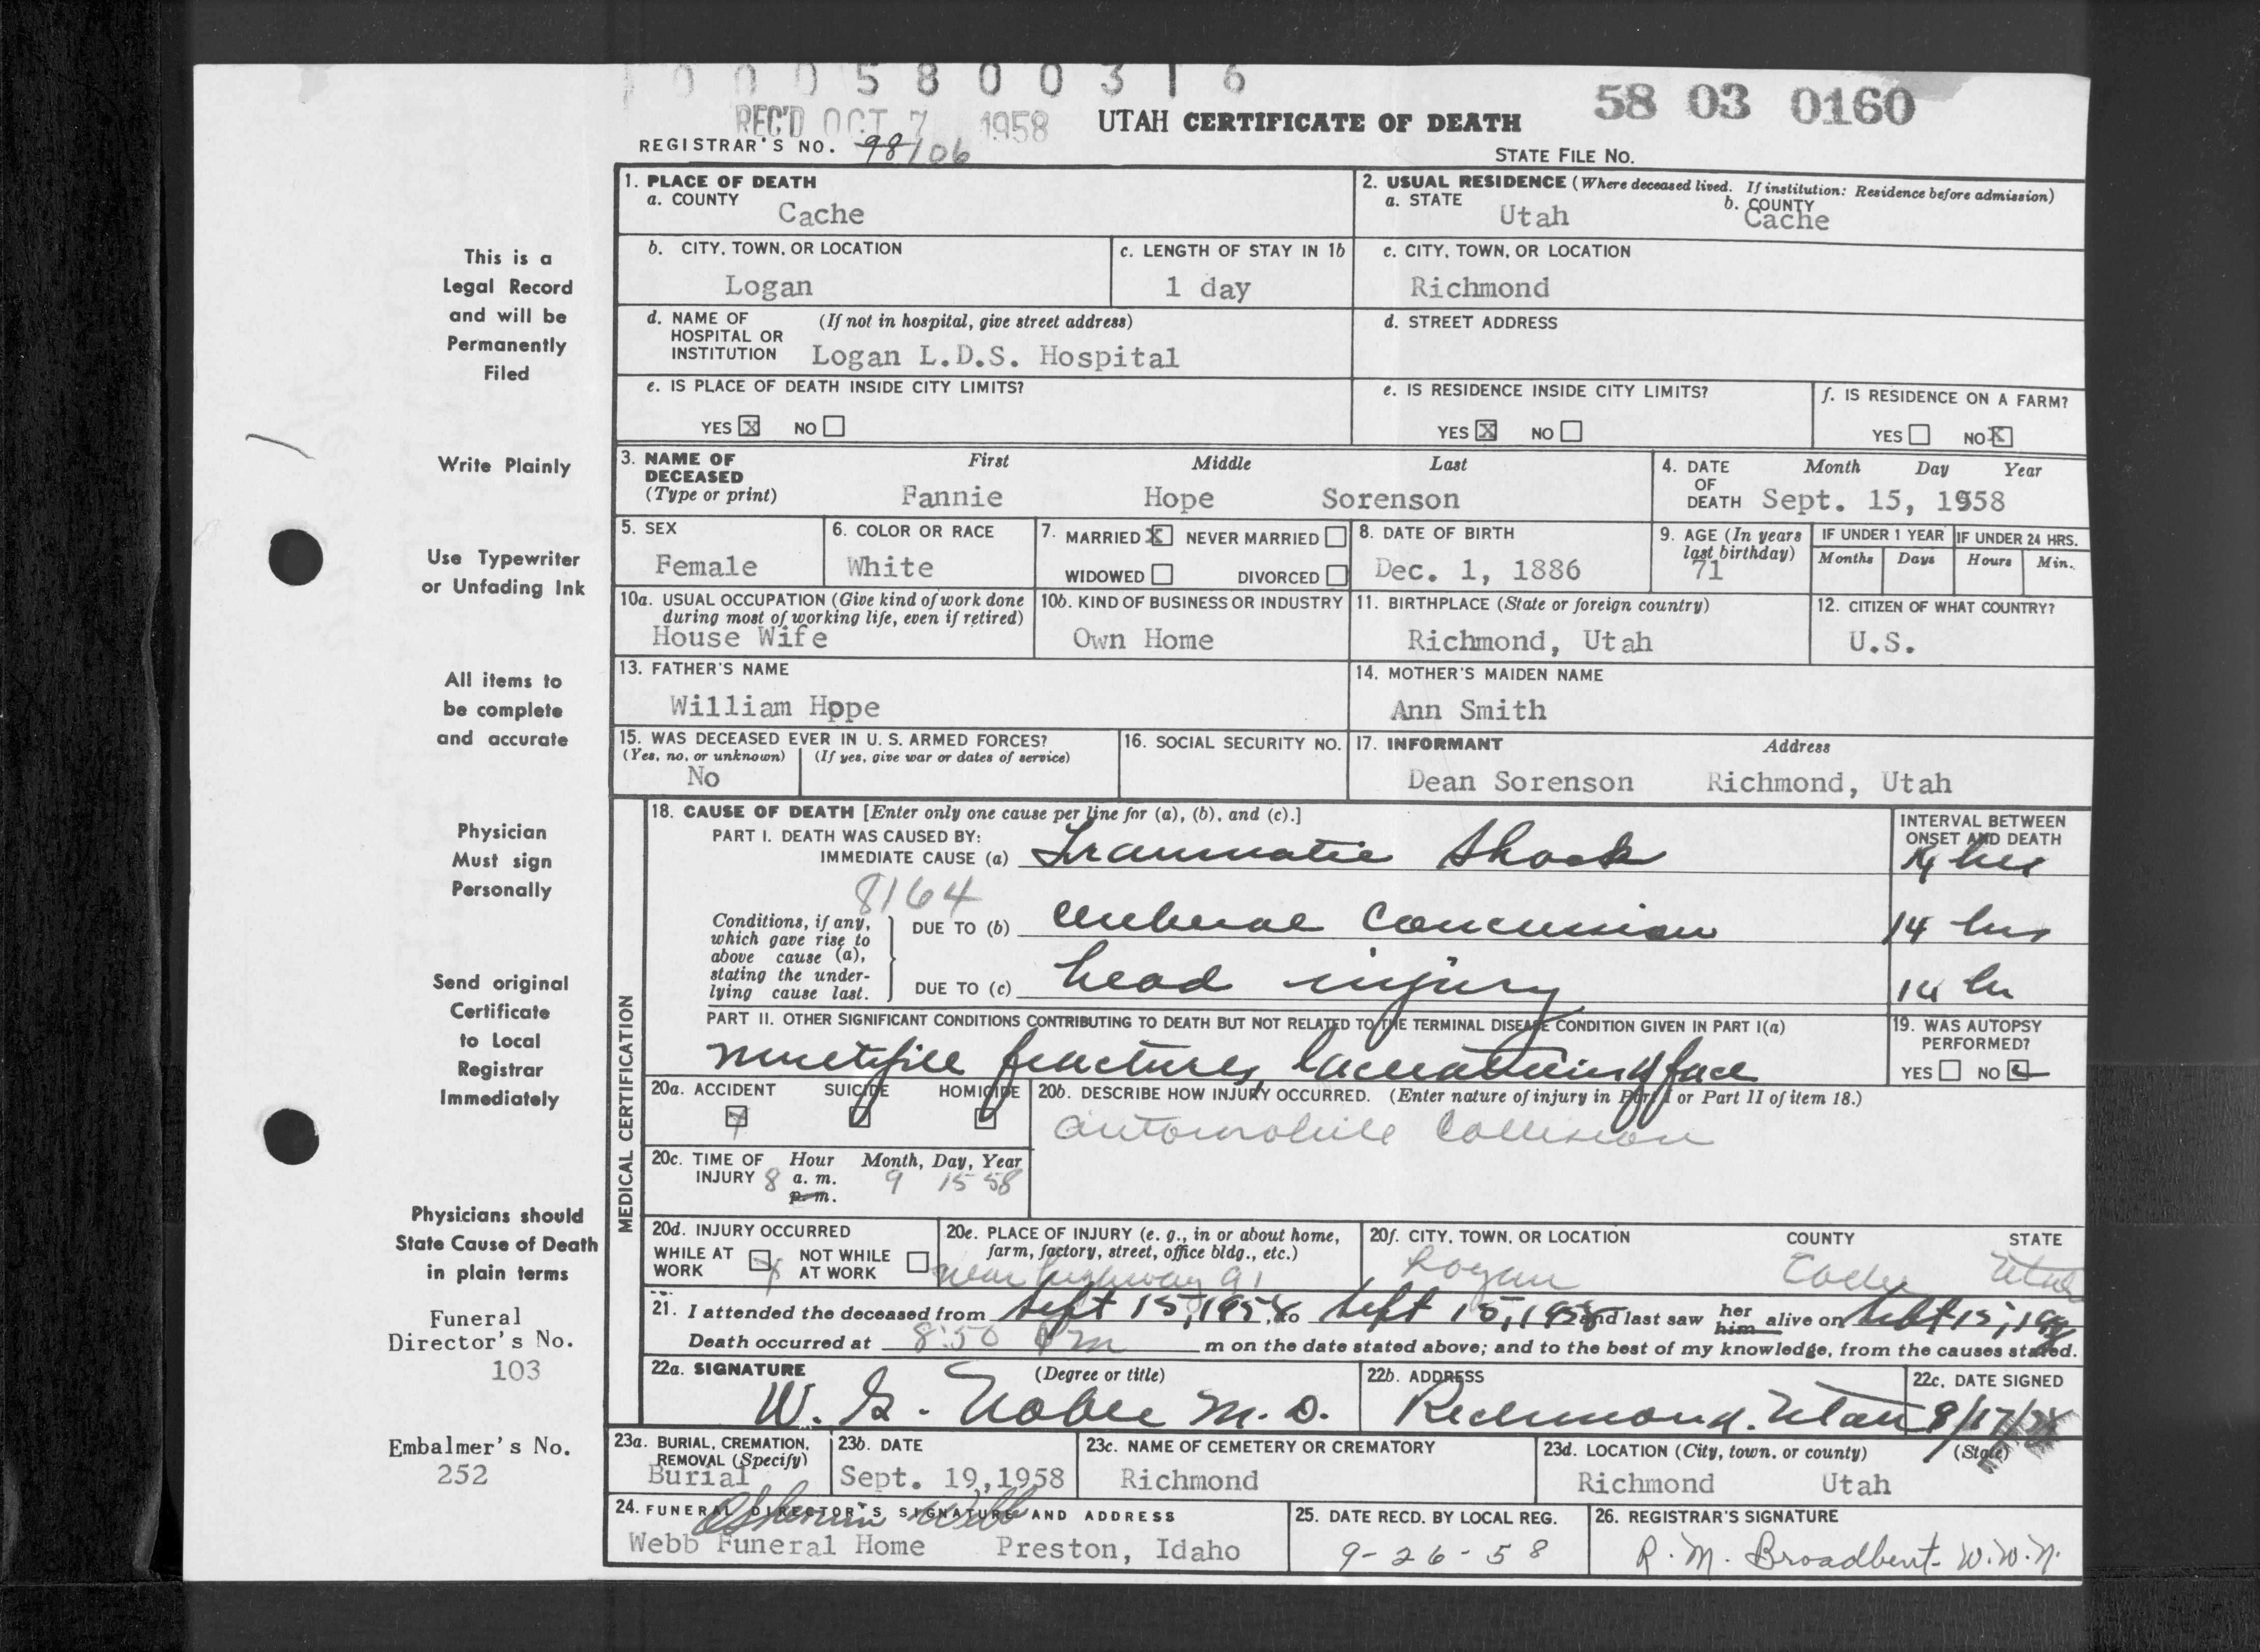 0 0 0 5 8 0 0 3 1 6
REC'D OCT 7 1958 UTAH CERTIFICATE OF DEATH 58 03 0160
REGISTRAR'S NO. 98 106 STATE FILE NO.
1. PLACE OF DEATH
a. COUNTY
Cache
2. USUAL RESIDENCE (Where deceased lived. If institution: Residence before admission)
a. STATE Utah b. COUNTY Cache
This is a
Legal Record
and will be
Permanently
Filed
b. CITY, TOWN, OR LOCATION
Logan
c. LENGTH OF STAY IN 1b
1 day
c. CITY, TOWN, OR LOCATION
Richmond
d. NAME OF HOSPITAL OR INSTITUTION (If not in hospital, give street address)
Logan L.D.S. Hospital
d. STREET ADDRESS
e. IS PLACE OF DEATH INSIDE CITY LIMITS?
YES X NO
e. IS RESIDENCE INSIDE CITY LIMITS?
YES X NO
f. IS RESIDENCE ON A FARM?
YES NO X
Write Plainly
3. NAME OF DECEASED (Type or print)
First Middle Last
Fannie Hope Sorenson
4. DATE OF DEATH Month Day Year
Sept. 15, 1958
Use Typewriter
or Unfading Ink
5. SEX
Female
6. COLOR OR RACE
White
7. MARRIED X NEVER MARRIED
WIDOWED DIVORCED
8. DATE OF BIRTH
Dec. 1, 1886
9. AGE (In years last birthday)
71
IF UNDER 1 YEAR
Months Days
IF UNDER 24 HRS.
Hours Min.
10a. USUAL OCCUPATION (Give kind of work done during most of working life, even if retired)
House Wife
10b. KIND OF BUSINESS OR INDUSTRY
Own Home
11. BIRTHPLACE (State or foreign country)
Richmond, Utah
12. CITIZEN OF WHAT COUNTRY?
U.S.
All items to
be complete
and accurate
13. FATHER'S NAME
William Hope
14. MOTHER'S MAIDEN NAME
Ann Smith
15. WAS DECEASED EVER IN U. S. ARMED FORCES?
(Yes, no, or unknown) (If yes, give war or dates of service)
No
16. SOCIAL SECURITY NO.
17. INFORMANT Address
Dean Sorenson Richmond, Utah
MEDICAL CERTIFICATION
Physician
Must sign
Personally
18. CAUSE OF DEATH [Enter only one cause per line for (a), (b), and (c).]
PART I. DEATH WAS CAUSED BY:
IMMEDIATE CAUSE (a) Traumatic Shock
INTERVAL BETWEEN ONSET AND DEATH
14 hrs
8164
Conditions, if any, which gave rise to above cause (a), stating the underlying cause last.
DUE TO (b) cerebral concussion 14 hrs
DUE TO (c) head injury 14 hr
Send original
Certificate
to Local
Registrar
Immediately
PART II. OTHER SIGNIFICANT CONDITIONS CONTRIBUTING TO DEATH BUT NOT RELATED TO THE TERMINAL DISEASE CONDITION GIVEN IN PART I(a)
multiple fractures, lacerations of face
19. WAS AUTOPSY PERFORMED?
YES NO
20a. ACCIDENT SUICIDE HOMICIDE
20b. DESCRIBE HOW INJURY OCCURRED. (Enter nature of injury in Part I or Part II of item 18.)
automobile Collision
20c. TIME OF INJURY Hour Month, Day, Year
8 a. m. 9 15 58
p. m.
Physicians should
State Cause of Death
in plain terms
20d. INJURY OCCURRED
WHILE AT WORK NOT WHILE AT WORK
20e. PLACE OF INJURY (e. g., in or about home, farm, factory, street, office bldg., etc.)
near highway 91
20f. CITY, TOWN, OR LOCATION COUNTY STATE
Logan Cache Utah
21. I attended the deceased from Sept 15, 1958, to Sept 15, 1958 and last saw her him alive on Sept 15, 1958
Death occurred at 8:50 pm m on the date stated above; and to the best of my knowledge, from the causes stated.
Funeral
Director's No.
103
22a. SIGNATURE (Degree or title)
W. G. Noble M.D.
22b. ADDRESS
Richmond, Utah
22c. DATE SIGNED
9/17/58
Embalmer's No.
252
23a. BURIAL, CREMATION, REMOVAL (Specify)
Burial
23b. DATE
Sept. 19,1958
23c. NAME OF CEMETERY OR CREMATORY
Richmond
23d. LOCATION (City, town, or county) (State)
Richmond Utah
24. FUNERAL DIRECTOR'S SIGNATURE AND ADDRESS
Webb
Webb Funeral Home Preston, Idaho
25. DATE RECD. BY LOCAL REG.
9-26-58
26. REGISTRAR'S SIGNATURE
R. M. Broadbent - W.W.N.